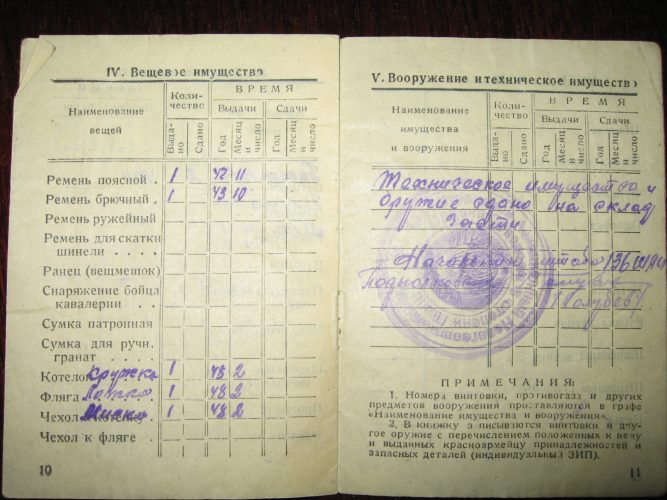 IV. Вещевое имущество
Наименование вещей
Коли-
чество
ВРЕМЯ
Выдачи
Сдачи
Выда-
но
Сдано
Год
Месяц и число
Год
Месяц и число
Ремень поясной . 1 42 11
Ремень брючный . 1 43 10
Ремень ружейный
Ремень для скатки
шинели . . .
Ранец (вещмешок)
Снаряжение бойца
кавалерии . . . .
Сумка патронная
Сумка для ручн.
гранат . . . .
Котелок Кружка 1 48 2
Фляга Ложка 1 48 2
Чехол к котелку Миска 1 48 2
Чехол к фляге
10
V. Вооружение и техническое имущество
Наименование
имущества
и вооружения
Коли-
чество
ВРЕМЯ
Выдачи
Сдачи
Выда-
но
Сдано
Год
Месяц и число
Год
Месяц и число
Техническое имущество и
оружие сдано на склад
части
Начальник штаба
Подполковник
(Голубев)
ПРИМЕЧАНИЯ:
1. Номера винтовки, противогаза и других
предметов вооружения проставляются в графе
«Наименование имущества и вооружения».
2. В книжку записываются винтовки и дру-
гое оружие с перечислением положенных к нему
и выданных красноармейцу принадлежностей и
запасных деталей (индивидуальный ЗИП).
11